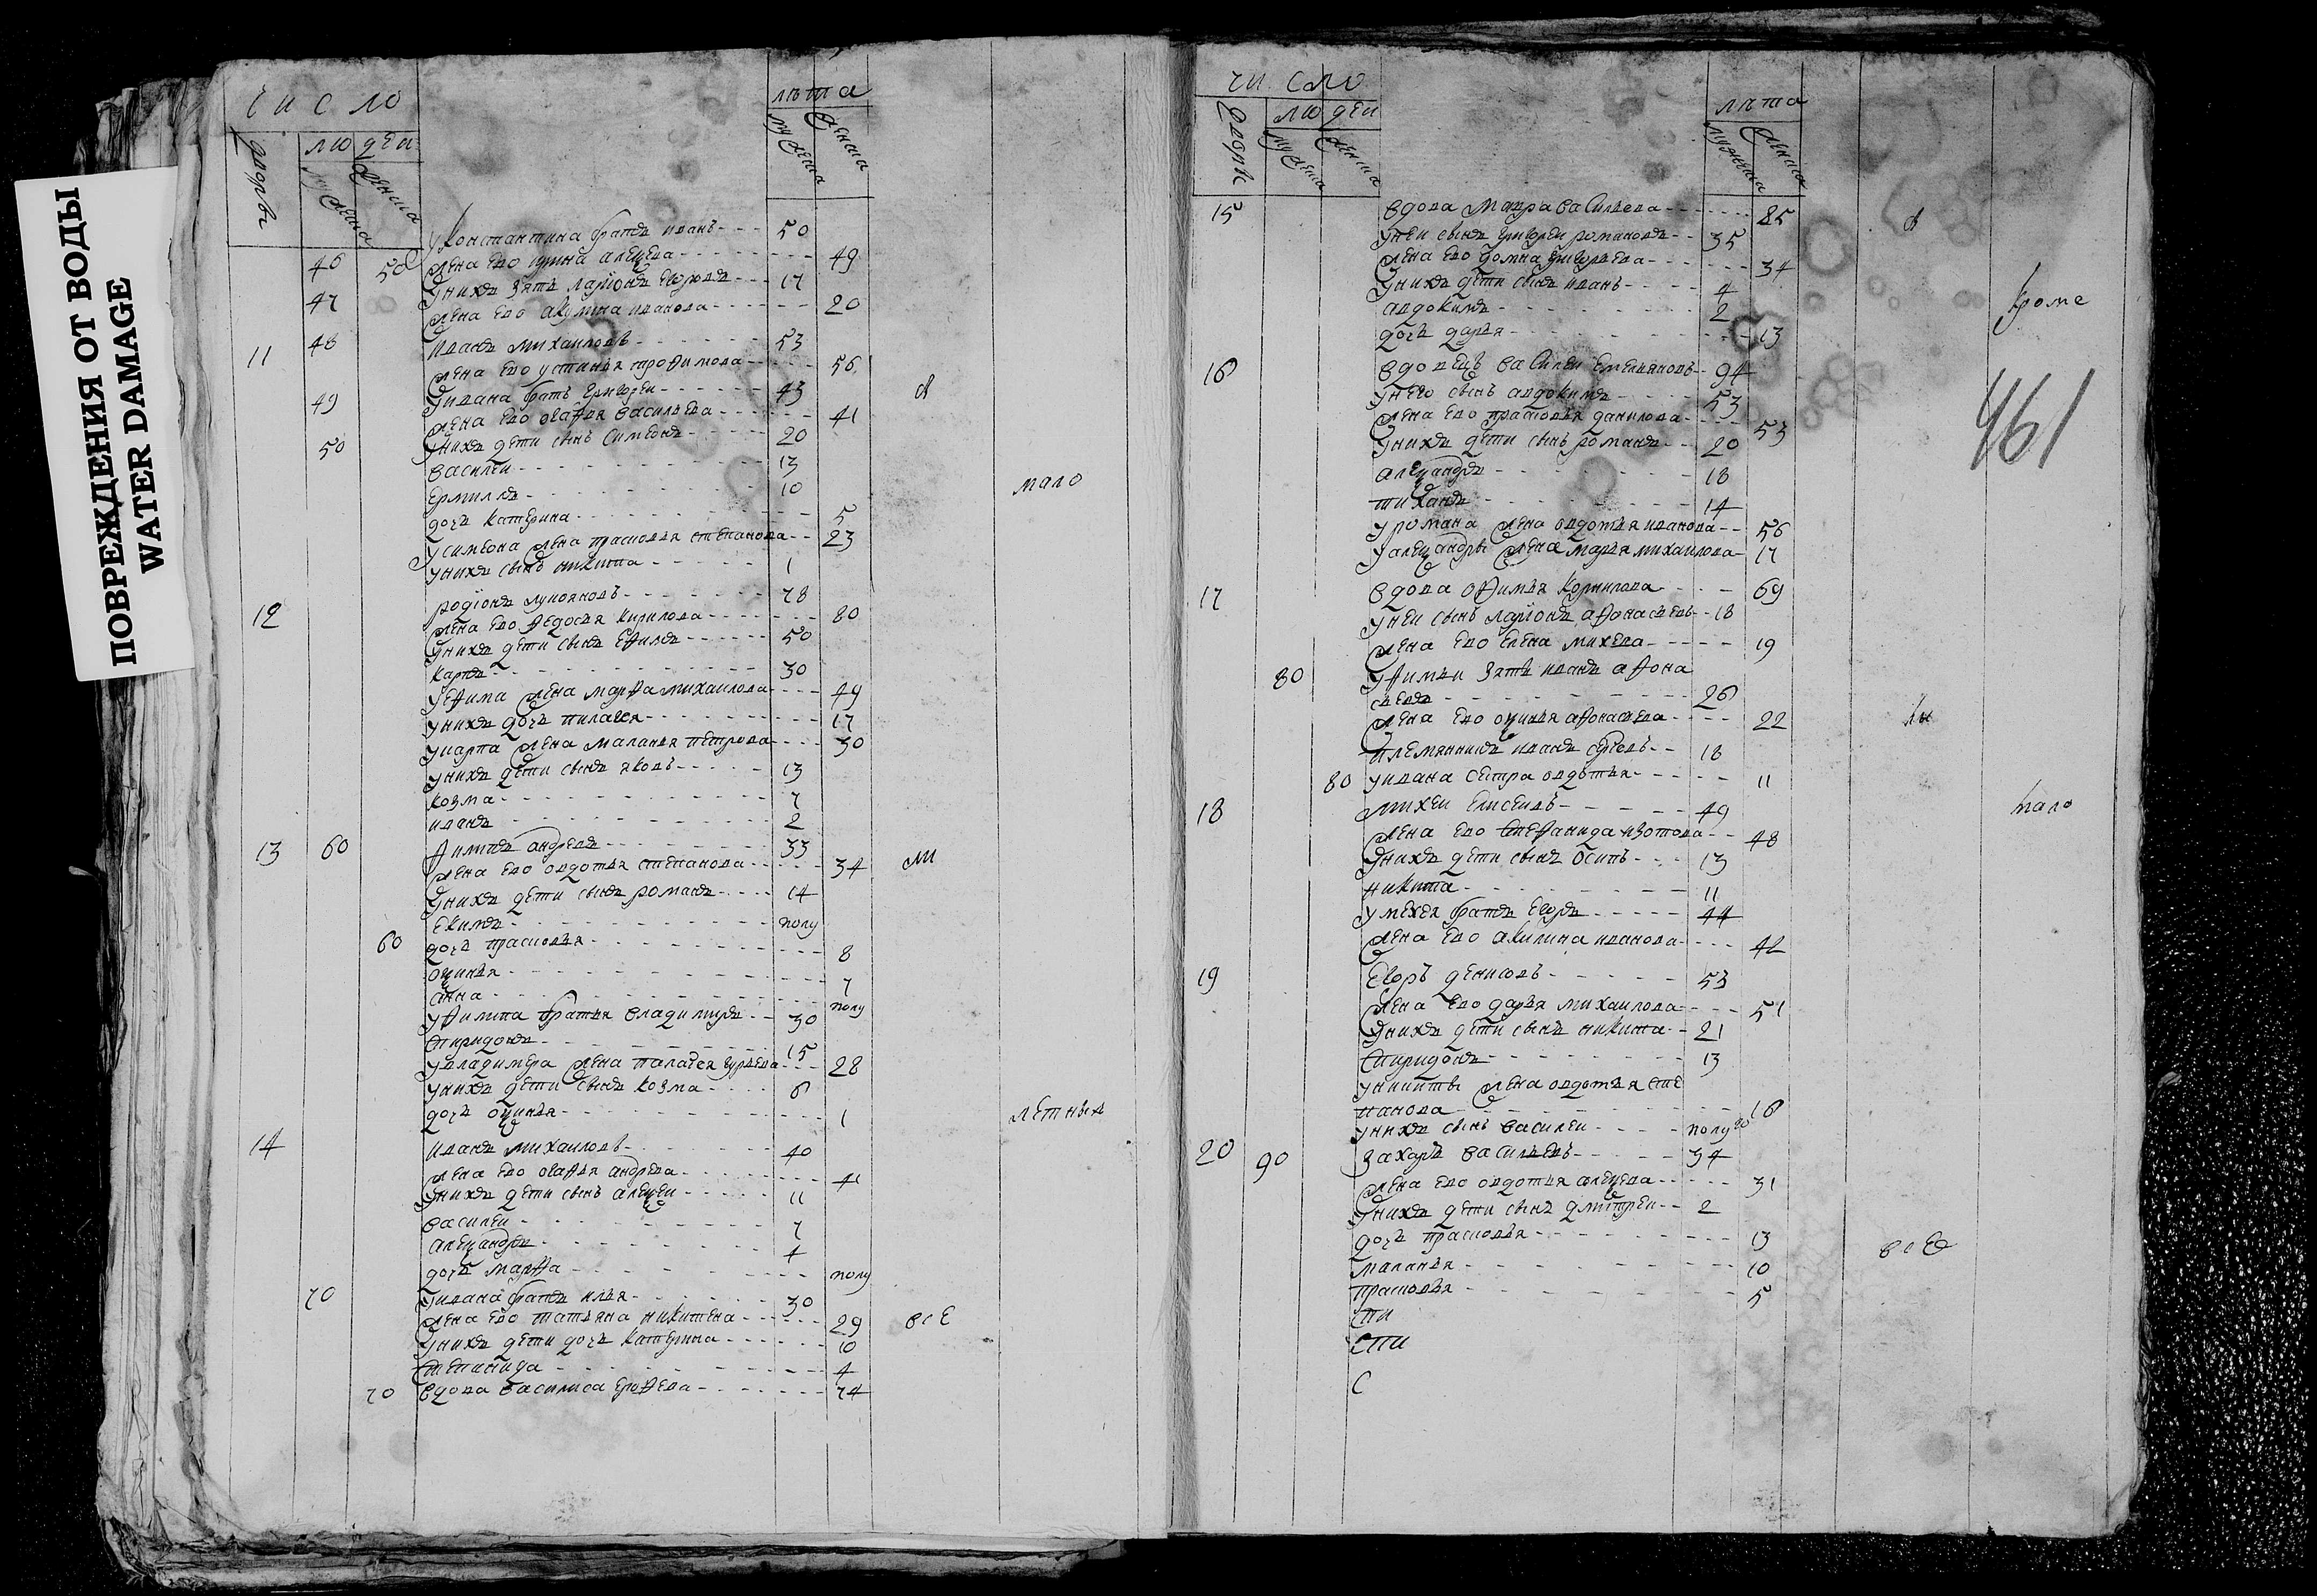 ПОВРЕЖДЕНИЯ ОТ ВОДЫ
WATER DAMAGE
число
дворы
людеи
мужеска
женска
лѣта
мужеска
женска
уконстантина братъ иванъ 50
46 50 жена ево ирина алеѯева 49
унихъ зять ларїонъ егоровъ 17
47 жена ево акулина иванова 20
11 48 иванъ михаиловъ 53
жена ево устинья трофимова 56
уивана братъ григореи 43
49 жена ево огафья васильева 41 я
50 унихъ дети сынъ симеонъ 20
василеи 13
ермилъ 10 мало
дочь катерина 5
усимеона жена прасковья степанова 23
унихъ сынъ никита 1
12 родїонъ лукояновъ 78
жена ево федосья кирилова 80
унихъ дети сынъ ефимъ 50
карпъ 30
уефима жена марфа михаилова 49
унихъ дочь пилагея 17
укарпа жена маланья петрова 30
унихъ дети сынъ яковъ 13
козма 7
иванъ 2
13 60 филипъ андреевъ 33
жена ево овдотья степанова 34 ли
унихъ дети сынъ романъ 14
екимъ полу
60 дочь прасковья 8
оѯинья 7
анна полу
уфилипа братья владимиръ 30
спиридонъ 15
увладимера жена палагея гурьева 28
унихъ дети сынъ козма 6
дочь оѯинья 1 летныя
14 иванъ михаиловъ 40
жена ево огафья андреева 41
унихъ дети сынъ алеѯеи 11
василеи 7
алеѯандръ 4
дочь марфа полу
70 уивана братъ илья 30
жена ево татьяна никитена 29 все
унихъ дети дочь катерина 10
степанида 4
70 вдова василиса ерофеева 74
число
дворы
людеи
мужеска
женска
лѣта
мужеска
женска
15 вдова мавра васильева 85
унеи сынъ григореи романовъ 35 я
жена ево домна григорьева 34
унихъ дети сынъ иванъ 4
авдокимъ 2 кроме
дочь дарья 13
16 вдовецъ василеи емельяновъ 94
унего сынъ авдокимъ 53
461
жена ево прасковья данилова 53
унихъ дети сынъ романъ 20
алеѯандръ 18
тиханъ 14
уромана жена овдотья иванова 56
уалеѯандры жена марья михаилова 17
17 вдова офимья корнилова 69
унеи сынъ ларїонъ афонасьевъ 18
жена ево елена михеева 19
80 уфимьи зять иванъ афона
сьевъ 26
жена ево оѯинья афонасьева 22
племянникъ иванъ 18
80 уивана сестра овдотья 11
18 михеи елисеивъ 49 мало
жена ево степанида изотова 48
унихъ дети сынъ осипъ 13
никита 11
умехея братъ егоръ 44
жена ево акилина иванова 42
19 егоръ денисовъ 53
жена ево дарья михаилова 51
унихъ дети сынъ никита 21
спиридонъ 13
уникиты жена овдотья сте
панова 16
унихъ сынъ василеи полу го
20 90 захаръ васильевъ 34
жена ево овдотья алеѯева 31
унихъ дети сынъ дмитреи 2
дочь прасковья 13 все
маланья 10
прасковья 5
спи
спи
с